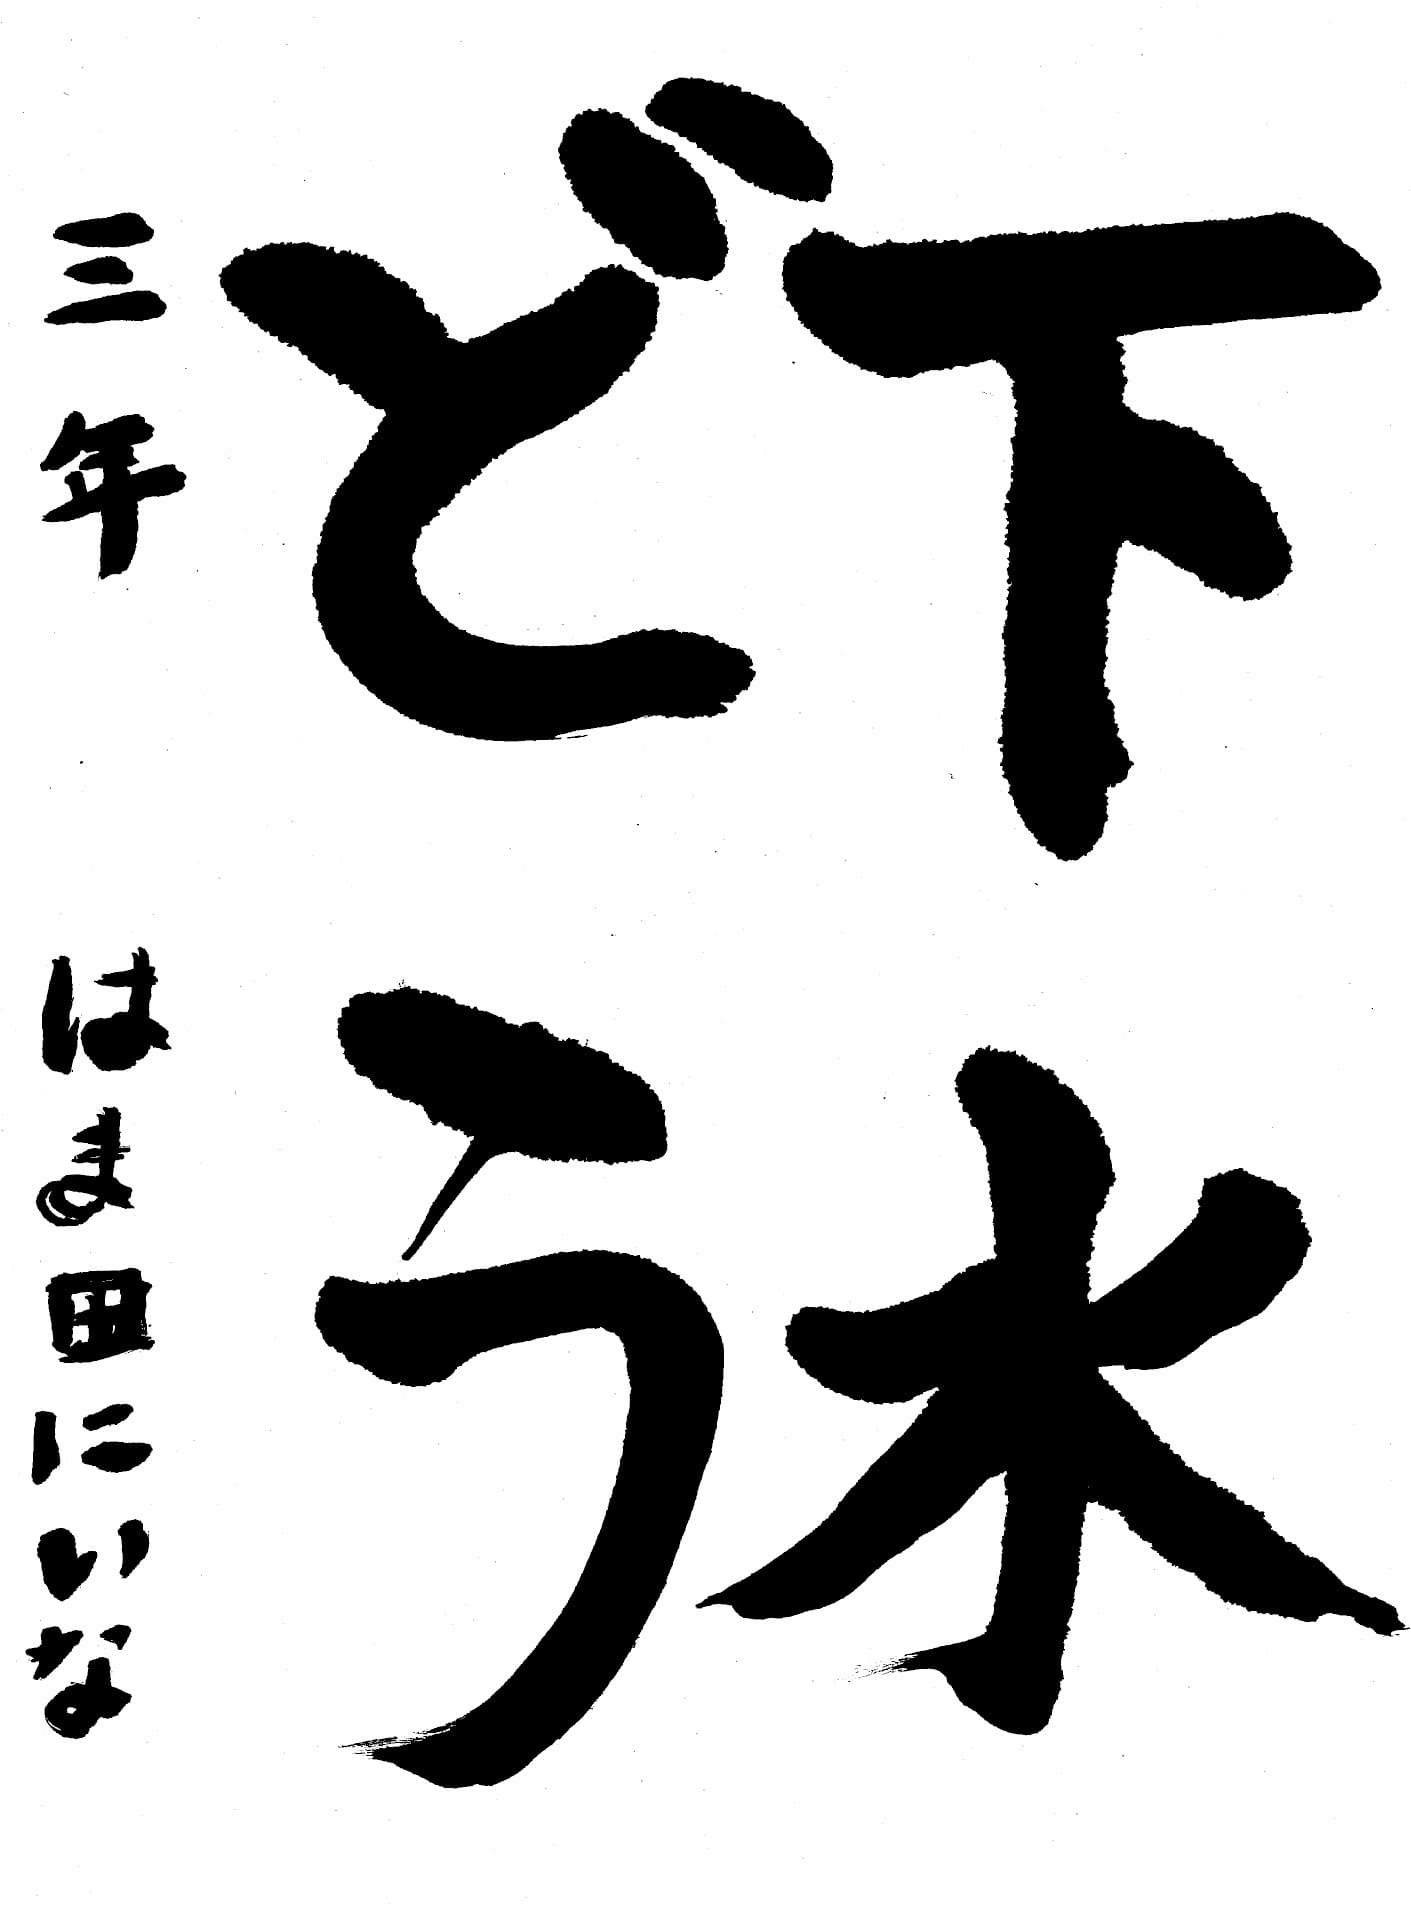 下水
どう
三年 はま田にいな